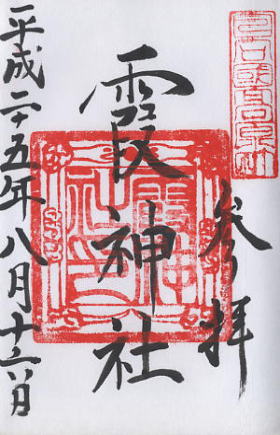 参拝
霞神社
平成二十五年八月十六日